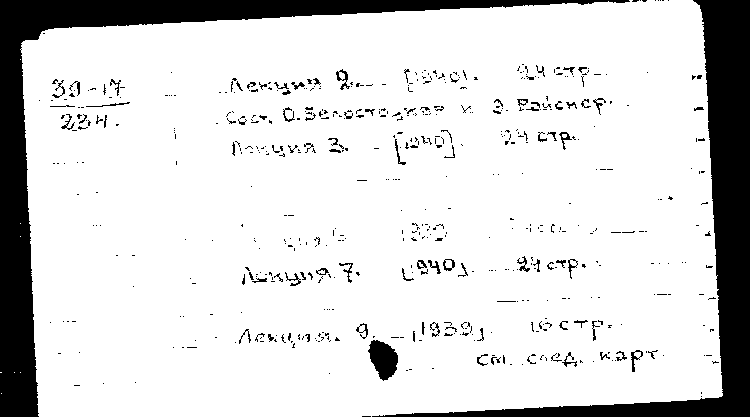 39-17
234.
Лекция 2. — [1940]. 24 стр.
Сост. О. Белостоцкая и Э. Райснер.
Лекция 3. - [1940]. 24 стр.
1939
Лекция 7. [1940]. 24 стр.
Лекция. 9. — [1939]. 16 стр.
см. след. карт